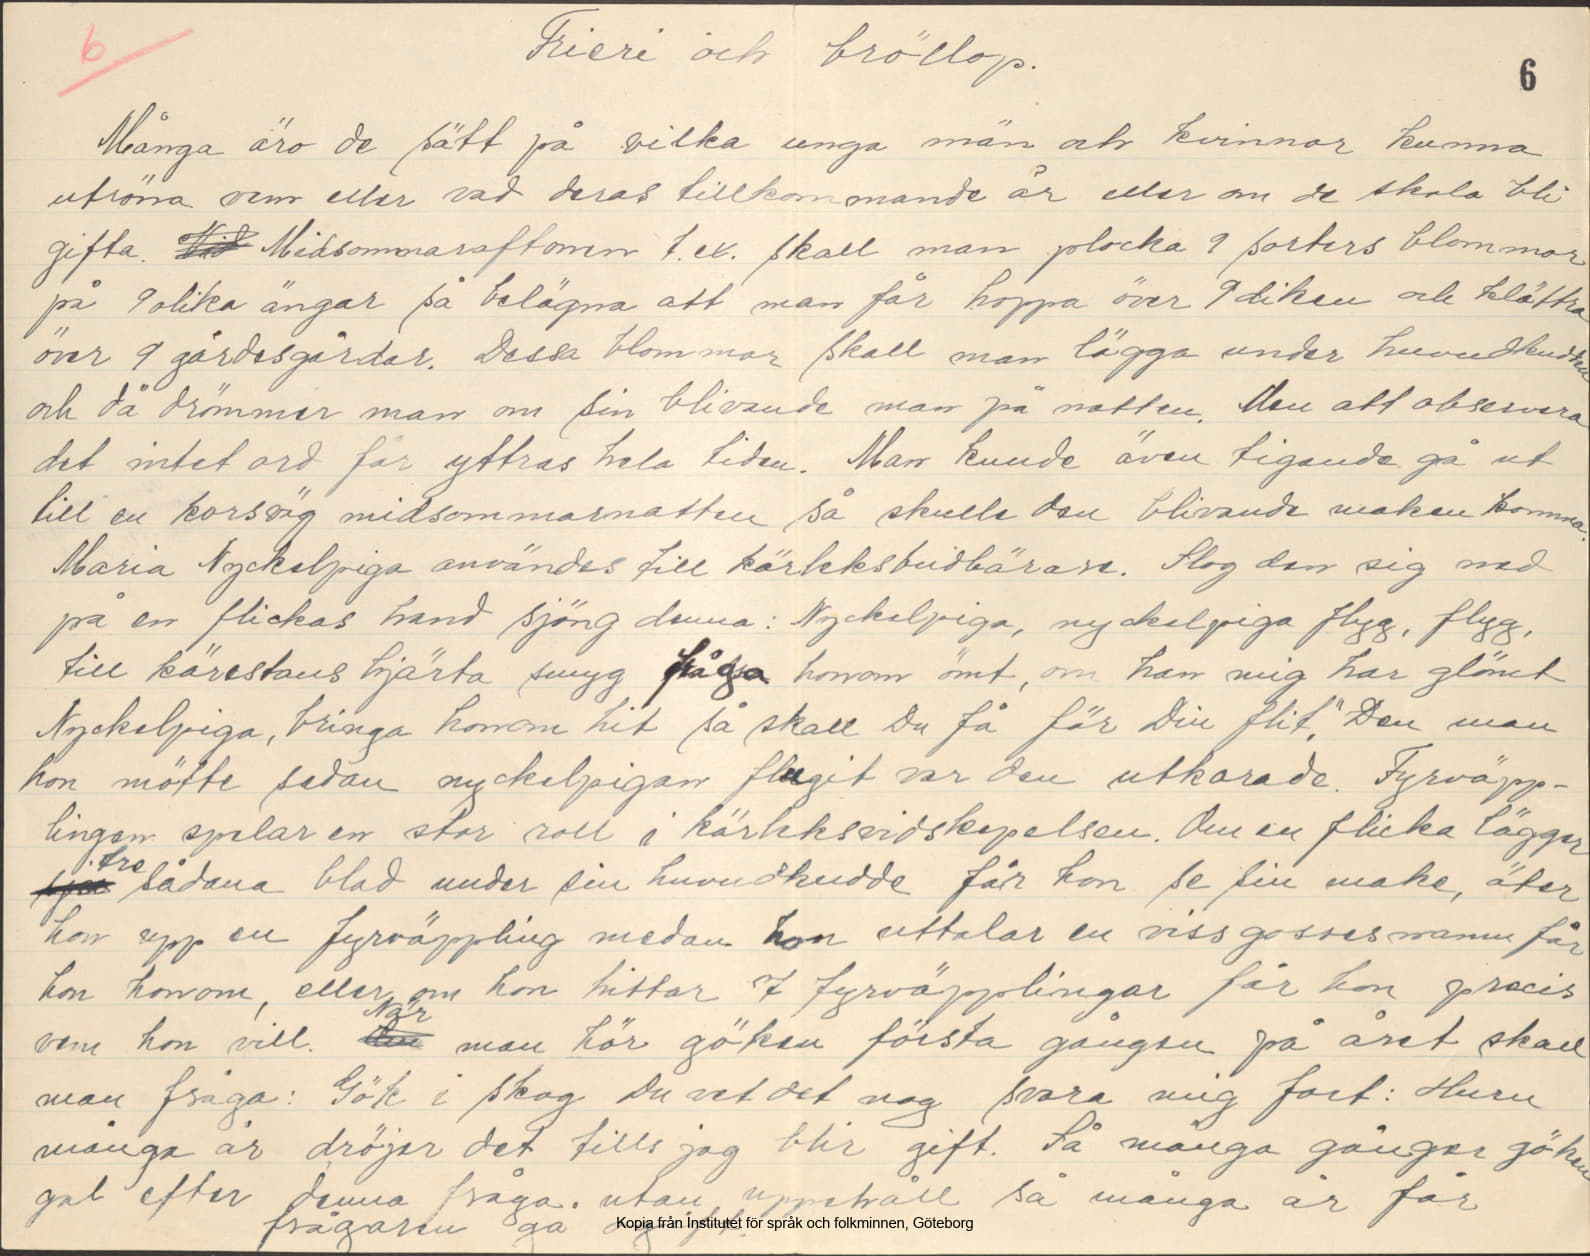 6
Frieri och bröllop.
6
Många äro de sätt på vilka unga män och kvinnor kunna
utröna vem eller vad deras tillkommande är eller om de skola bli
gifta. Vid Midsommaraftonen t.ex. skall man plocka 9 sorters blommor
på 9 olika ängar så belägna att man får hoppa över 9 diken och klättra
över 9 gärdesgårdar. Dessa blommor skall man lägga under huvudkudden
och då drömmer man om sin blivande man på natten. Men att observera
det intet ord får yttras hela tiden. Man kunde även tigande gå ut
till en korsväg midsommarnatten så skulle den blivande maken komma.
Maria Nyckelpiga användes till kärleksbudbärare. Slog den sig ned
på en flickas hand sjöng denna: Nyckelpiga, nyckelpiga flyg, flyg,
till kärestans hjärta smyg fråga honom ömt, om han mig har glömt
Nyckelpiga, bringa honom hit så skall Du få för Din flit." Den man
hon mötte sedan nyckelpigan flugit var den utkorade. Fyrväpp-
lingen spelar en stor roll i kärleksvidskepelsen. Om en flicka lägger
tre sådana blad under sin huvudkudde får hon se sin make, äter
hon upp en fyrväppling medan hon uttalar en viss gosses namn får
hon honom, eller om hon hittar 7 fyrväpplingar får hon precis
vem hon vill. När man hör göken första gången på året skall
man fråga: Gök i skog Du vet det nog svara mig fort: Huru
många år dröjer det tills jag blir gift. Så många gånger göken
gal efter denna fråga utan uppehåll så många år får
frågaren gå ogift.
Kopia från Institutet för språk och folkminnen, Göteborg